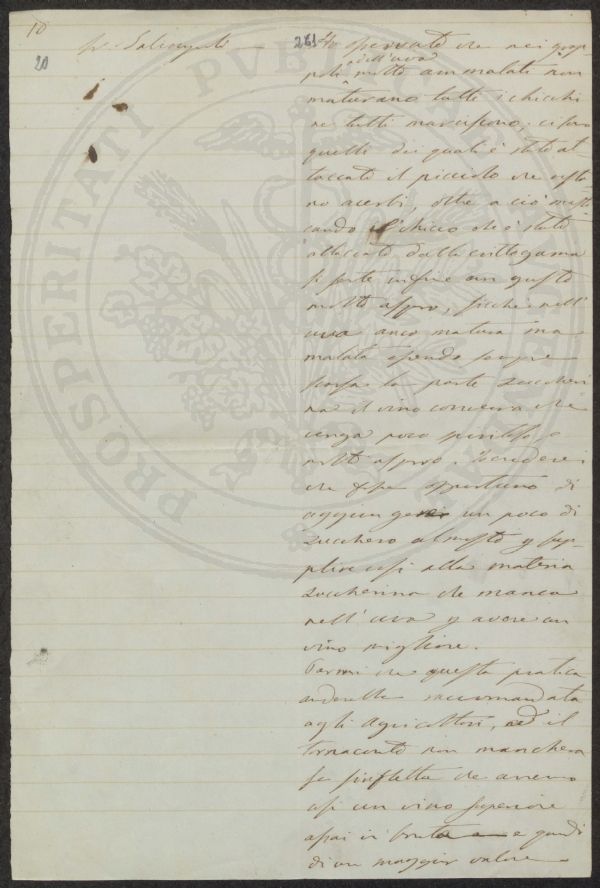 10
20
261 Ho osservato che nei grap
poli dell'uva molto ammalati non
maturano tutti i chicchi
ne tutti marciscono, ci son
quelli dei quali è stato at
taccato il picciolo che resta
no acerbi, oltre a ciò masti
cando il chicco che è stato
attaccato dalla crittogama
si sente infine un gusto
molto aspro, sicchè nell'
uva anco matura ma
malata essendo sempre
scarsa la parte zuccheri
na il vino conviene che
venga poco spiritoso e
molto aspro. Io crederei
che fosse opportuno di
aggiungere un poco di
zucchero al mosto p sup
plire così alla materia
zuccherina che manca
nell'uva p avere un
vino migliore.
Parmi che questa pratica
anderebbe raccomandata
agli agricoltori, ed il
tornaconto non manchera
se si rifletta che avremo
così un vino superiore
assai in bontà e quindi
di un maggior valore
PROSPERITATI PUBLICAE